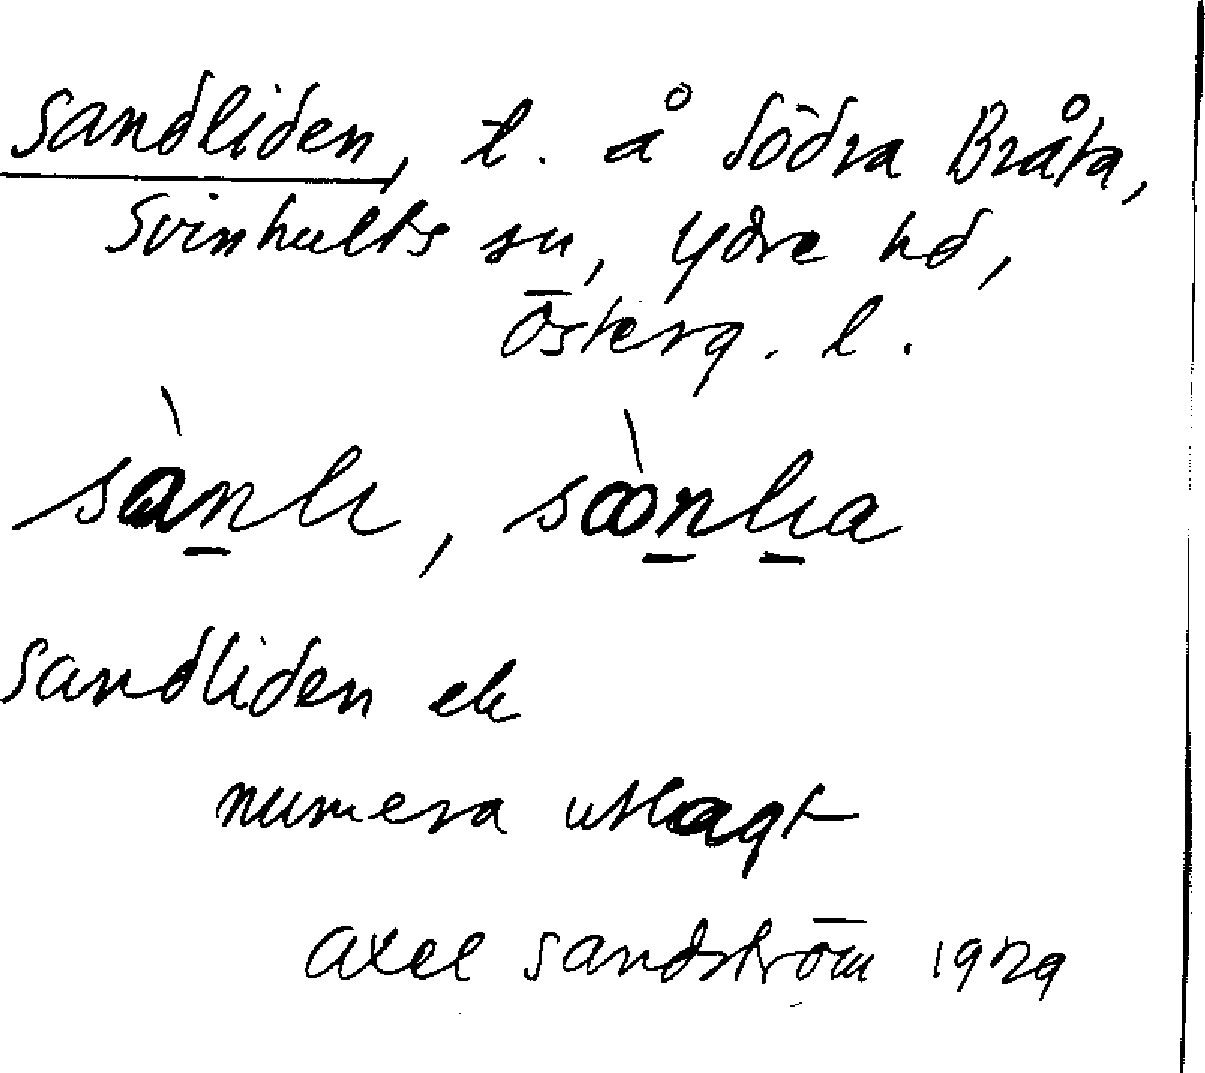 Sandliden, t. å Södra Bråta,
Svinhults sn, Ydre hd,
Österg. l.
sànli, sòònlia
Sandliden ek
numera utlagt
Axel Sandström 1929